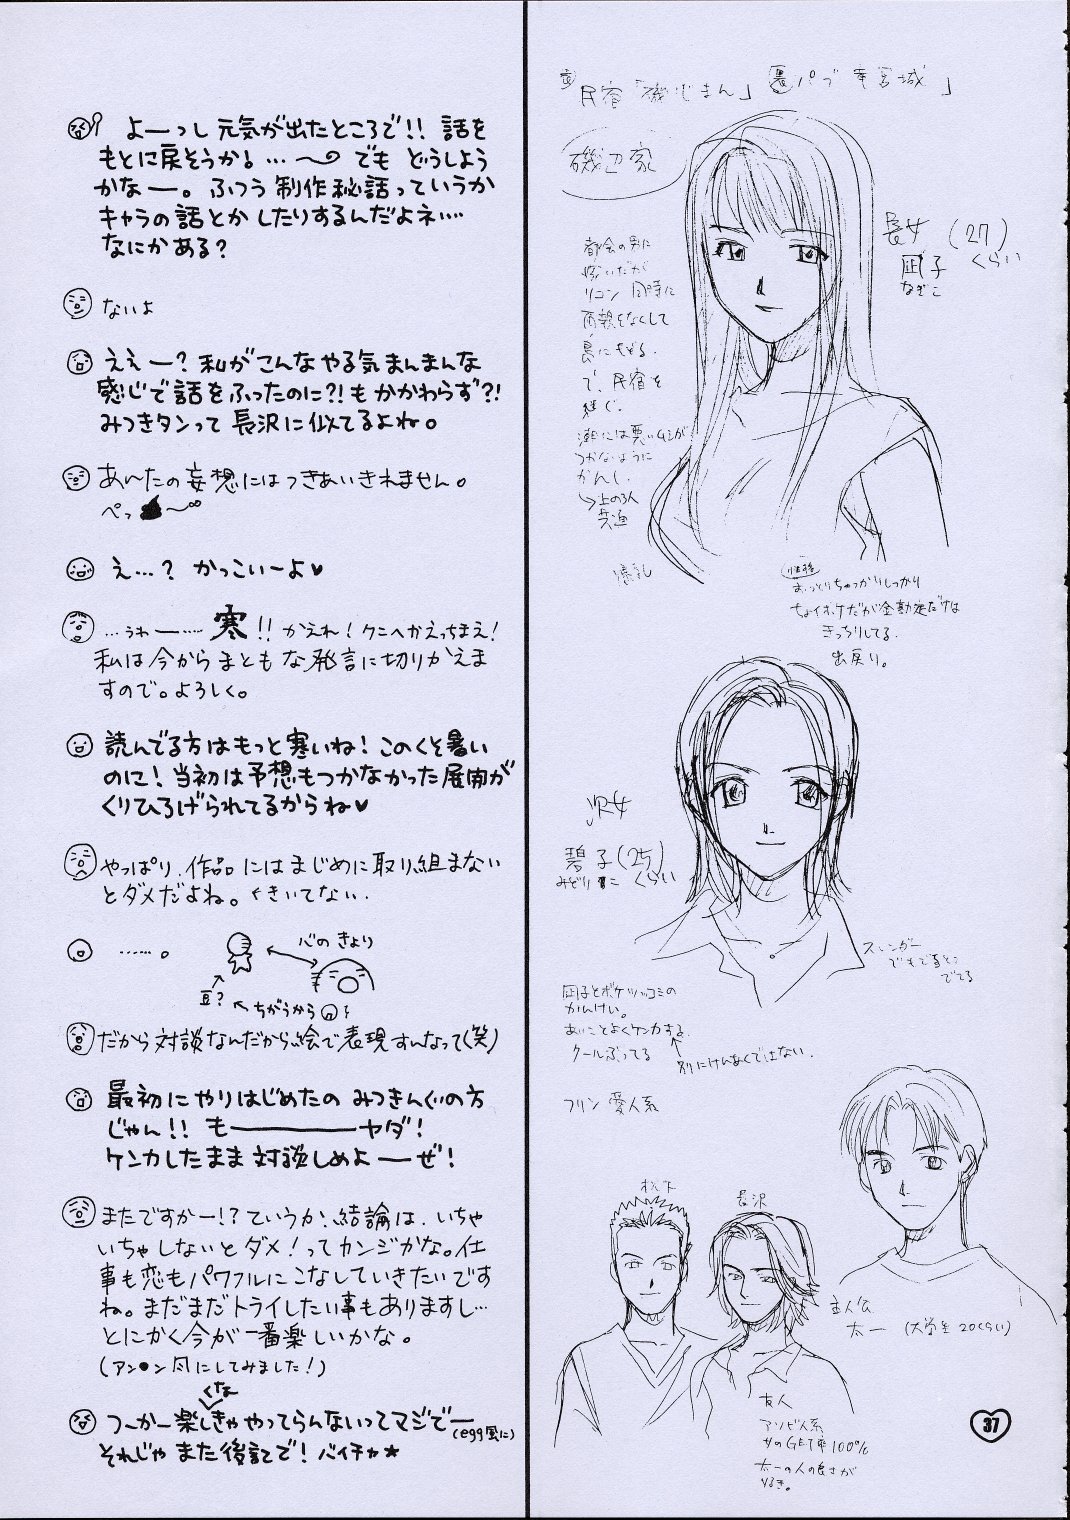 よーっし 元気が出たところで!! 話を
もとに戻そうか! … 〜 でも どうしよう
かなー。ふつう 制作秘話っていうか
キャラの話とか したりするんだよネ…
なにかある?
ないよ
ええー? 私がこんなやる気まんまんな
感じで話をふったのに?! もかかわらず?!
みつきタンって 長沢に似てるよね。
あ〜たの妄想にはつきあいきれません。
ぺっ
え…? かっこいーよ♥
…うわー…… 寒!! かえれ! クニへかえっちまえ!
私は今からまともな発言に切りかえま
すので。よろしく。
読んでる方はもっと寒いね! このくそ暑い
のに! 当初は予想もつかなかった展開が
くりひろげられてるからね♥
やっぱり、作品にはまじめに取り組まない
とダメだよね。 <きいてない。
……。
心の きょり
豆?
ちがうから
だから対談なんだから絵で表現すんなって(笑)
最初にやりはじめたの みつきんぐの方
じゃん!! も————ヤダ!
ケンカしたまま 対談しめよーぜ!
またですかー!? ていうか、結論は、いちゃ
いちゃしないとダメ! ってカンジかな。仕
事も恋もパワフルにこなしていきたいです
ね。まだまだトライしたい事もありますし…
とにかく今が一番楽しいかな。
(アン●ン風にしてみました!)
くな
つーかー楽しきゃやってらんないってマジでー
(egg風に)
それじゃ また後記で! バイチャ★
民宿「磯じまん」 パブ「 城」
磯辺家
長女 (27)
凪子 くらい
なぎこ
都会の男に
嫁いだが
リコン 同時に
両親をなくして
島にもどる。
で、民宿を
継ぐ。
潮には悪いムシが
つかないように
かんし。
→上の3人
共通
爆乳
性格
おっとりちゃっかりしっかり
ちょイボケだが金勘定だけは
きっちりしてる。
出戻り。
次女
碧子 (25)
みどりこ くらい
スレンダー
でもでるとこ
でてる
凪子とボケツッコミの
かんけい。
あいことよくケンカする
クールぶってる
別にけんあくではない。
フリン 愛人系
松下
長沢
主人公
太一 (大学生 20くらい)
友人
アソビ人系
女のGET率100%
太一の人の良さが
好き。
37